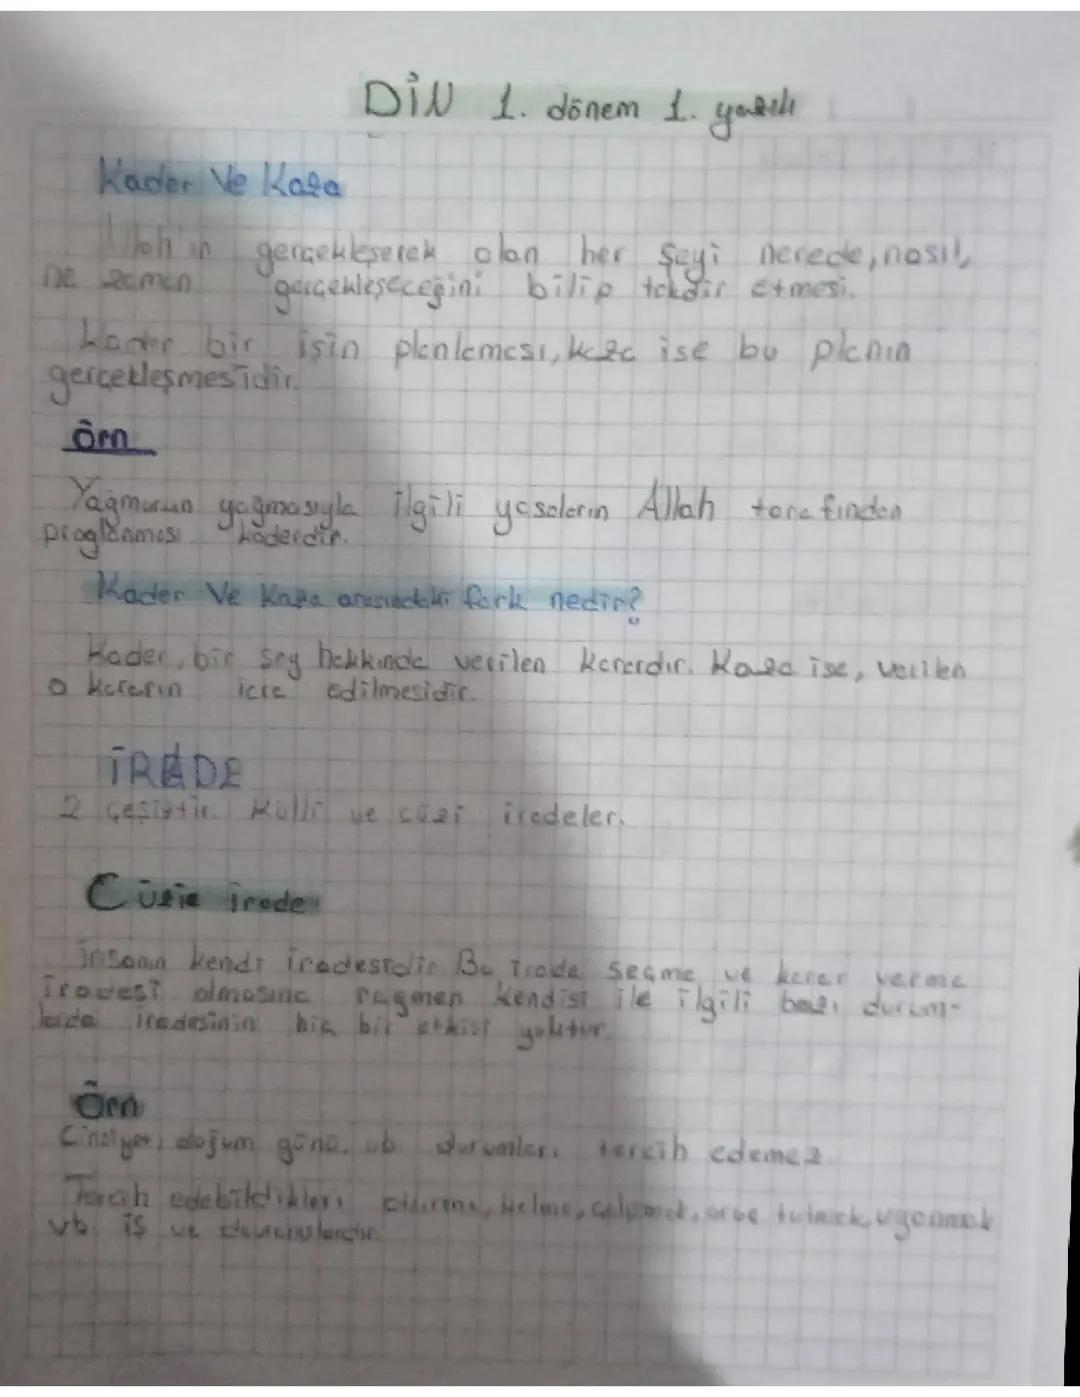 DİN 1. dönem 1. yazılı
Kader Ve Kaza
Allah'ın gerçekleşecek olan her şeyi nerede, nasıl,
ne zaman gerçekleşeceğini bilip takdir etmesi.
Kader bir işin planlaması, kaza ise bu planın
gerçekleşmesidir.
Örn
Yağmurun yağmasıyla ilgili yasaların Allah tarafından
proglanması kaderdir.
Kader Ve Kaza arasındaki fark nedir?
Kader, bir şey hakkında verilen karardır. Kaza ise, verilen
o kararın icra edilmesidir.
İRADE
2 çeşittir. Külli ve cüzi iradeler.
Cüzie irade
İnsanın kendi iradesidir. Bu irade seçme ve karar verme
iradesi olmasına ragmen kendisi ile ilgili bazı durum-
larda iradesinin hiç bir etkisi yoktur.
Örn
Cinsiyet, doğum günü, vb. durumları tercih edemez
Tercih edebildikleri oturma, kalma, çalışmak, oruç tutmak, uyanmak
vb. iş ve davranışlardır.